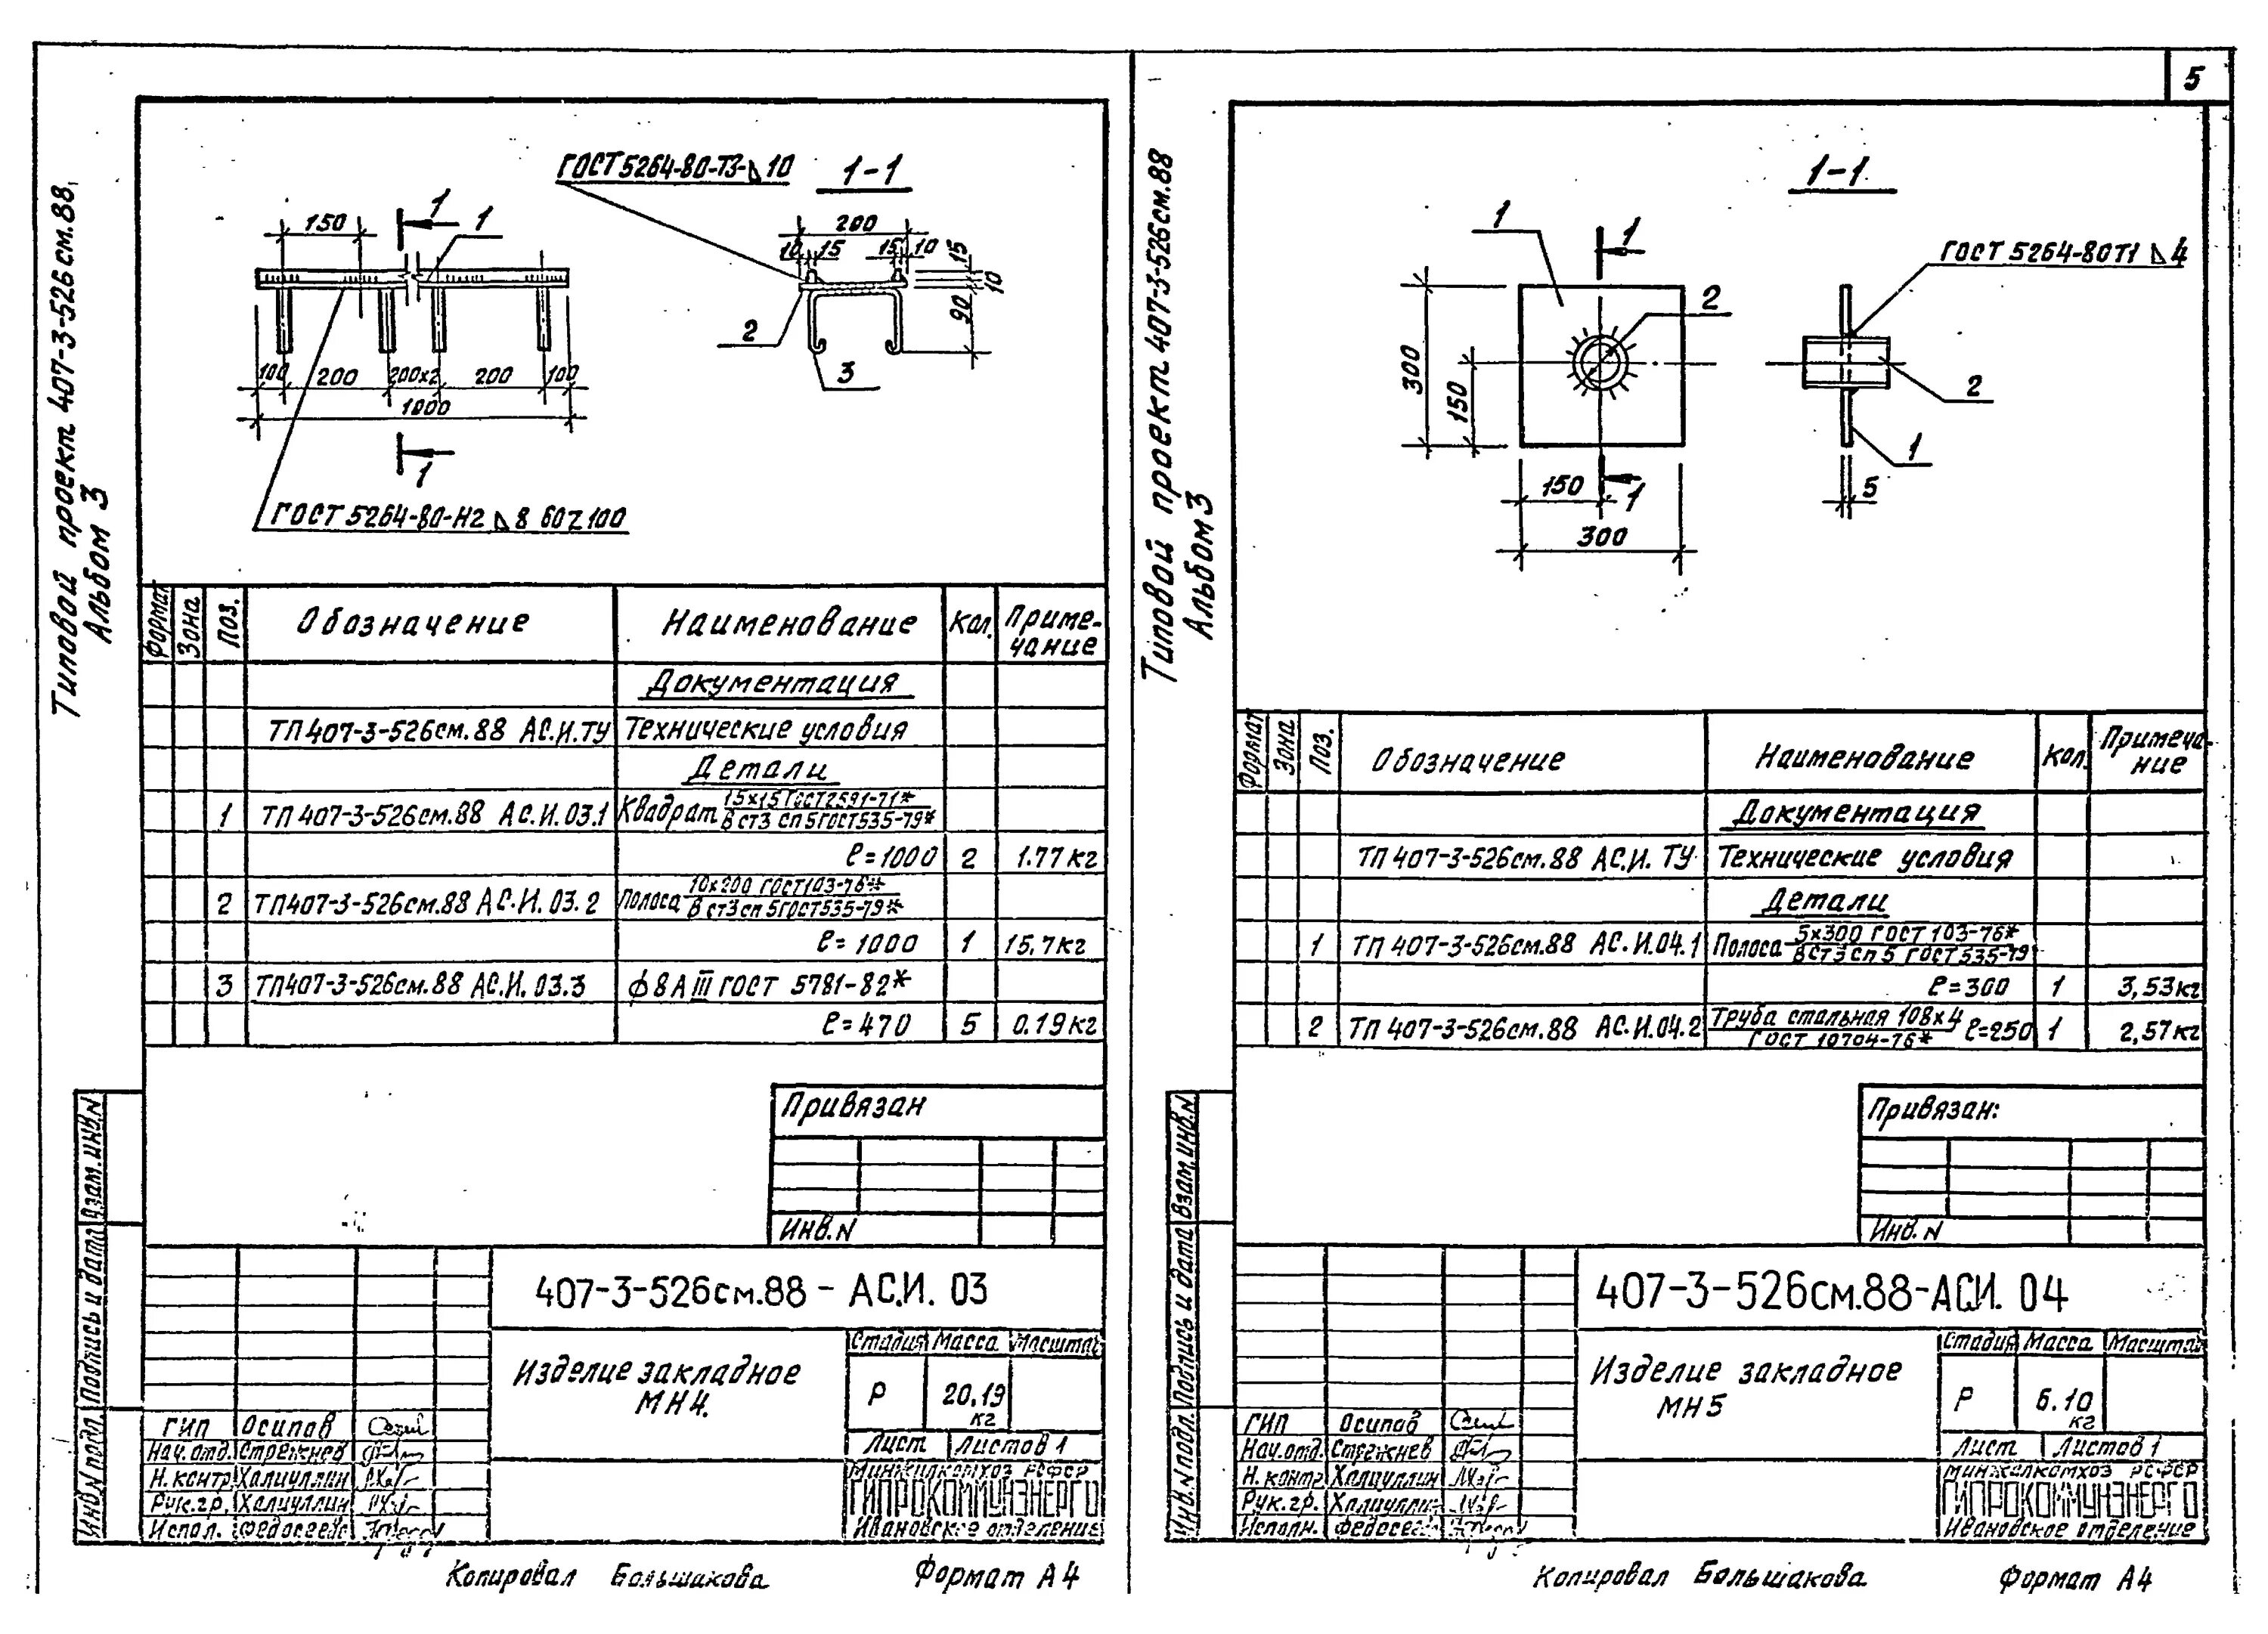 5
Типовой проект 407-3-526см.88
Альбом 3
ГОСТ 5264-80-Т3-⊿10
1-1
1
1
150
200
10
15
15
10
15
10
90
2
3
100
200
200х2
200
100
1000
1
ГОСТ 5264-80-Н2 ⊿ 8 60Z100
Формат
Зона
Поз.
Обозначение
Наименование
Кол.
Приме-
чание
Документация
ТП407-3-526см.88 АС.И.ТУ Технические условия
Детали
1 ТП407-3-526см.88 АС.И.03.1 Квадрат 15х15 ГОСТ2591-71*
В СТ3 сп 5 ГОСТ535-79*
ℓ=1000 2 1.77кг
2 ТП407-3-526см.88 АС.И.03.2 Полоса 10х200 ГОСТ103-76*
В Ст3 сп 5 ГОСТ535-79*
ℓ=1000 1 15,7кг
3 ТП407-3-526см.88 АС.И.03.3 ф8АIII ГОСТ 5781-82*
ℓ=470 5 0.19кг
Привязан
Инв.N
407-3-526см.88 - АС.И. 03
Изделие закладное
МН4.
Стадия Масса Масштаб
Р 20,19
кг
Лист Листов 1
Минжилкомхоз РСФСР
ГИПРОКОММУНЭНЕРГО
Ивановское отделение
ГИП Осипов
Нач.отд. Стрежнев
Н.контр Халиуллин
Рук.гр. Халиуллин
Испол.
Взам.инв.N
Подпись и дата
Инв.N подл.
Копировал Большакова Формат А4
Типовой проект 407-3-526см.88
Альбом 3
1-1
1
1
2
ГОСТ 5264-80Т1 ⊿ 4
300
150
150
1
300
2
1
5
Формат
Зона
Поз.
Обозначение
Наименование
Кол.
Примеча-
ние
Документация
ТП407-3-526см.88 АС.И.ТУ Технические условия
Детали
1 ТП407-3-526см.88 АС.И.04.1 Полоса 5х300 ГОСТ 103-76*
В Ст3 сп 5 ГОСТ535-79
ℓ=300 1 3,53кг
2 ТП407-3-526см.88 АС.И.04.2 Труба стальная 108х4 ℓ=250 1 2,57кг
ГОСТ 10704-76*
Привязан:
Инв.N
407-3-526см.88-АС.И. 04
Изделие закладное
МН5
Стадия Масса Масштаб
Р 6.10
кг
Лист Листов 1
Минжилкомхоз РСФСР
ГИПРОКОММУНЭНЕРГО
Ивановское отделение
ГИП Осипов
Нач.отд. Стрежнев
Н.контр Халиуллин
Рук.гр. Халиуллин
Исполн.
Взам.инв.N
Подпись и дата
Инв.N подл.
Копировал Большакова Формат А4